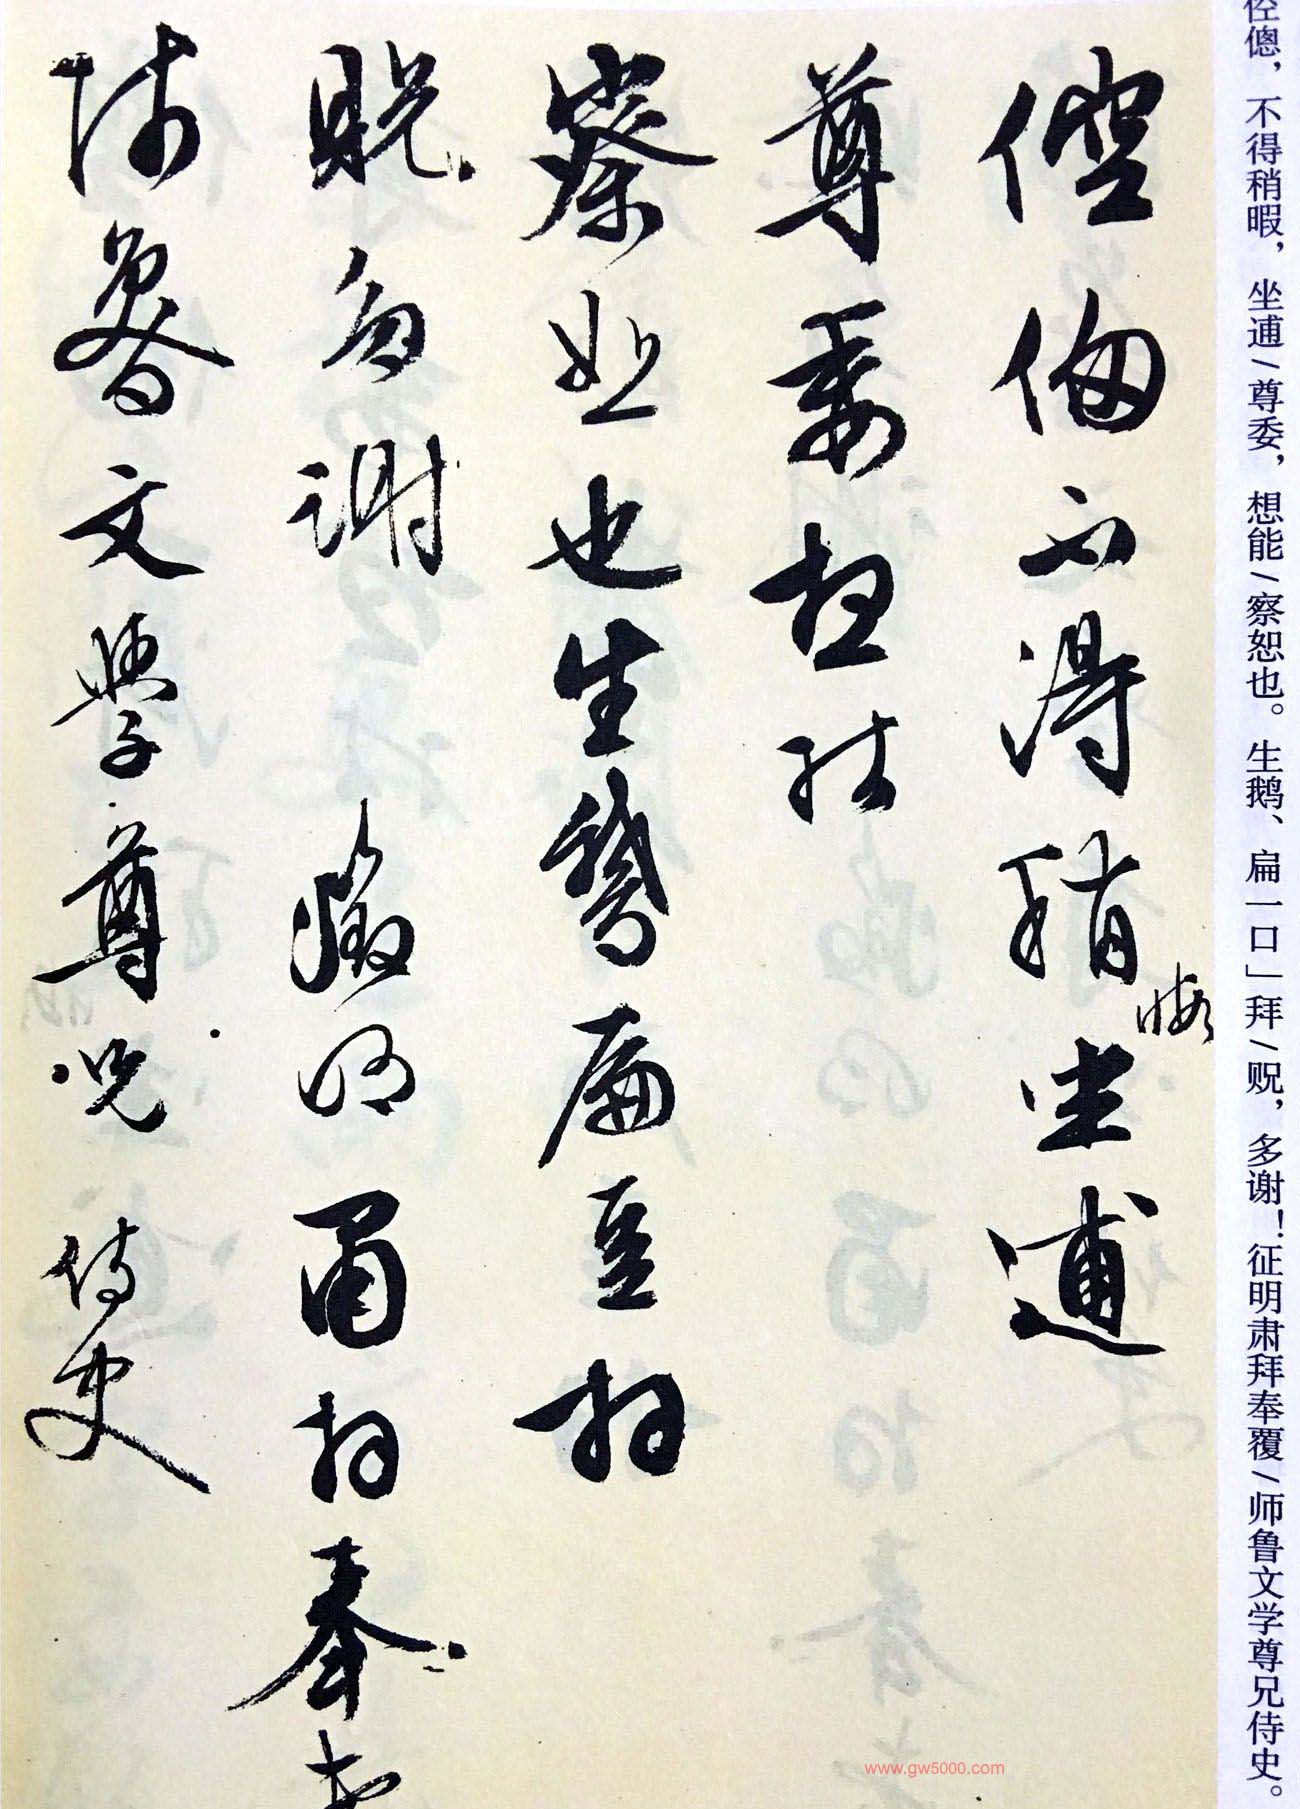 倥傯不得稍暇坐逋
尊委想能
察恕也生鵞扁豆拜
貺多謝徵明肅拜奉
師魯文學尊兄侍史
倥傯，不得稍暇，坐逋/尊委，想能/察恕也。生鹅、扁一口」拜/贶，多谢！征明肃拜奉覆/师鲁文学尊兄侍史。
www.gw5000.com